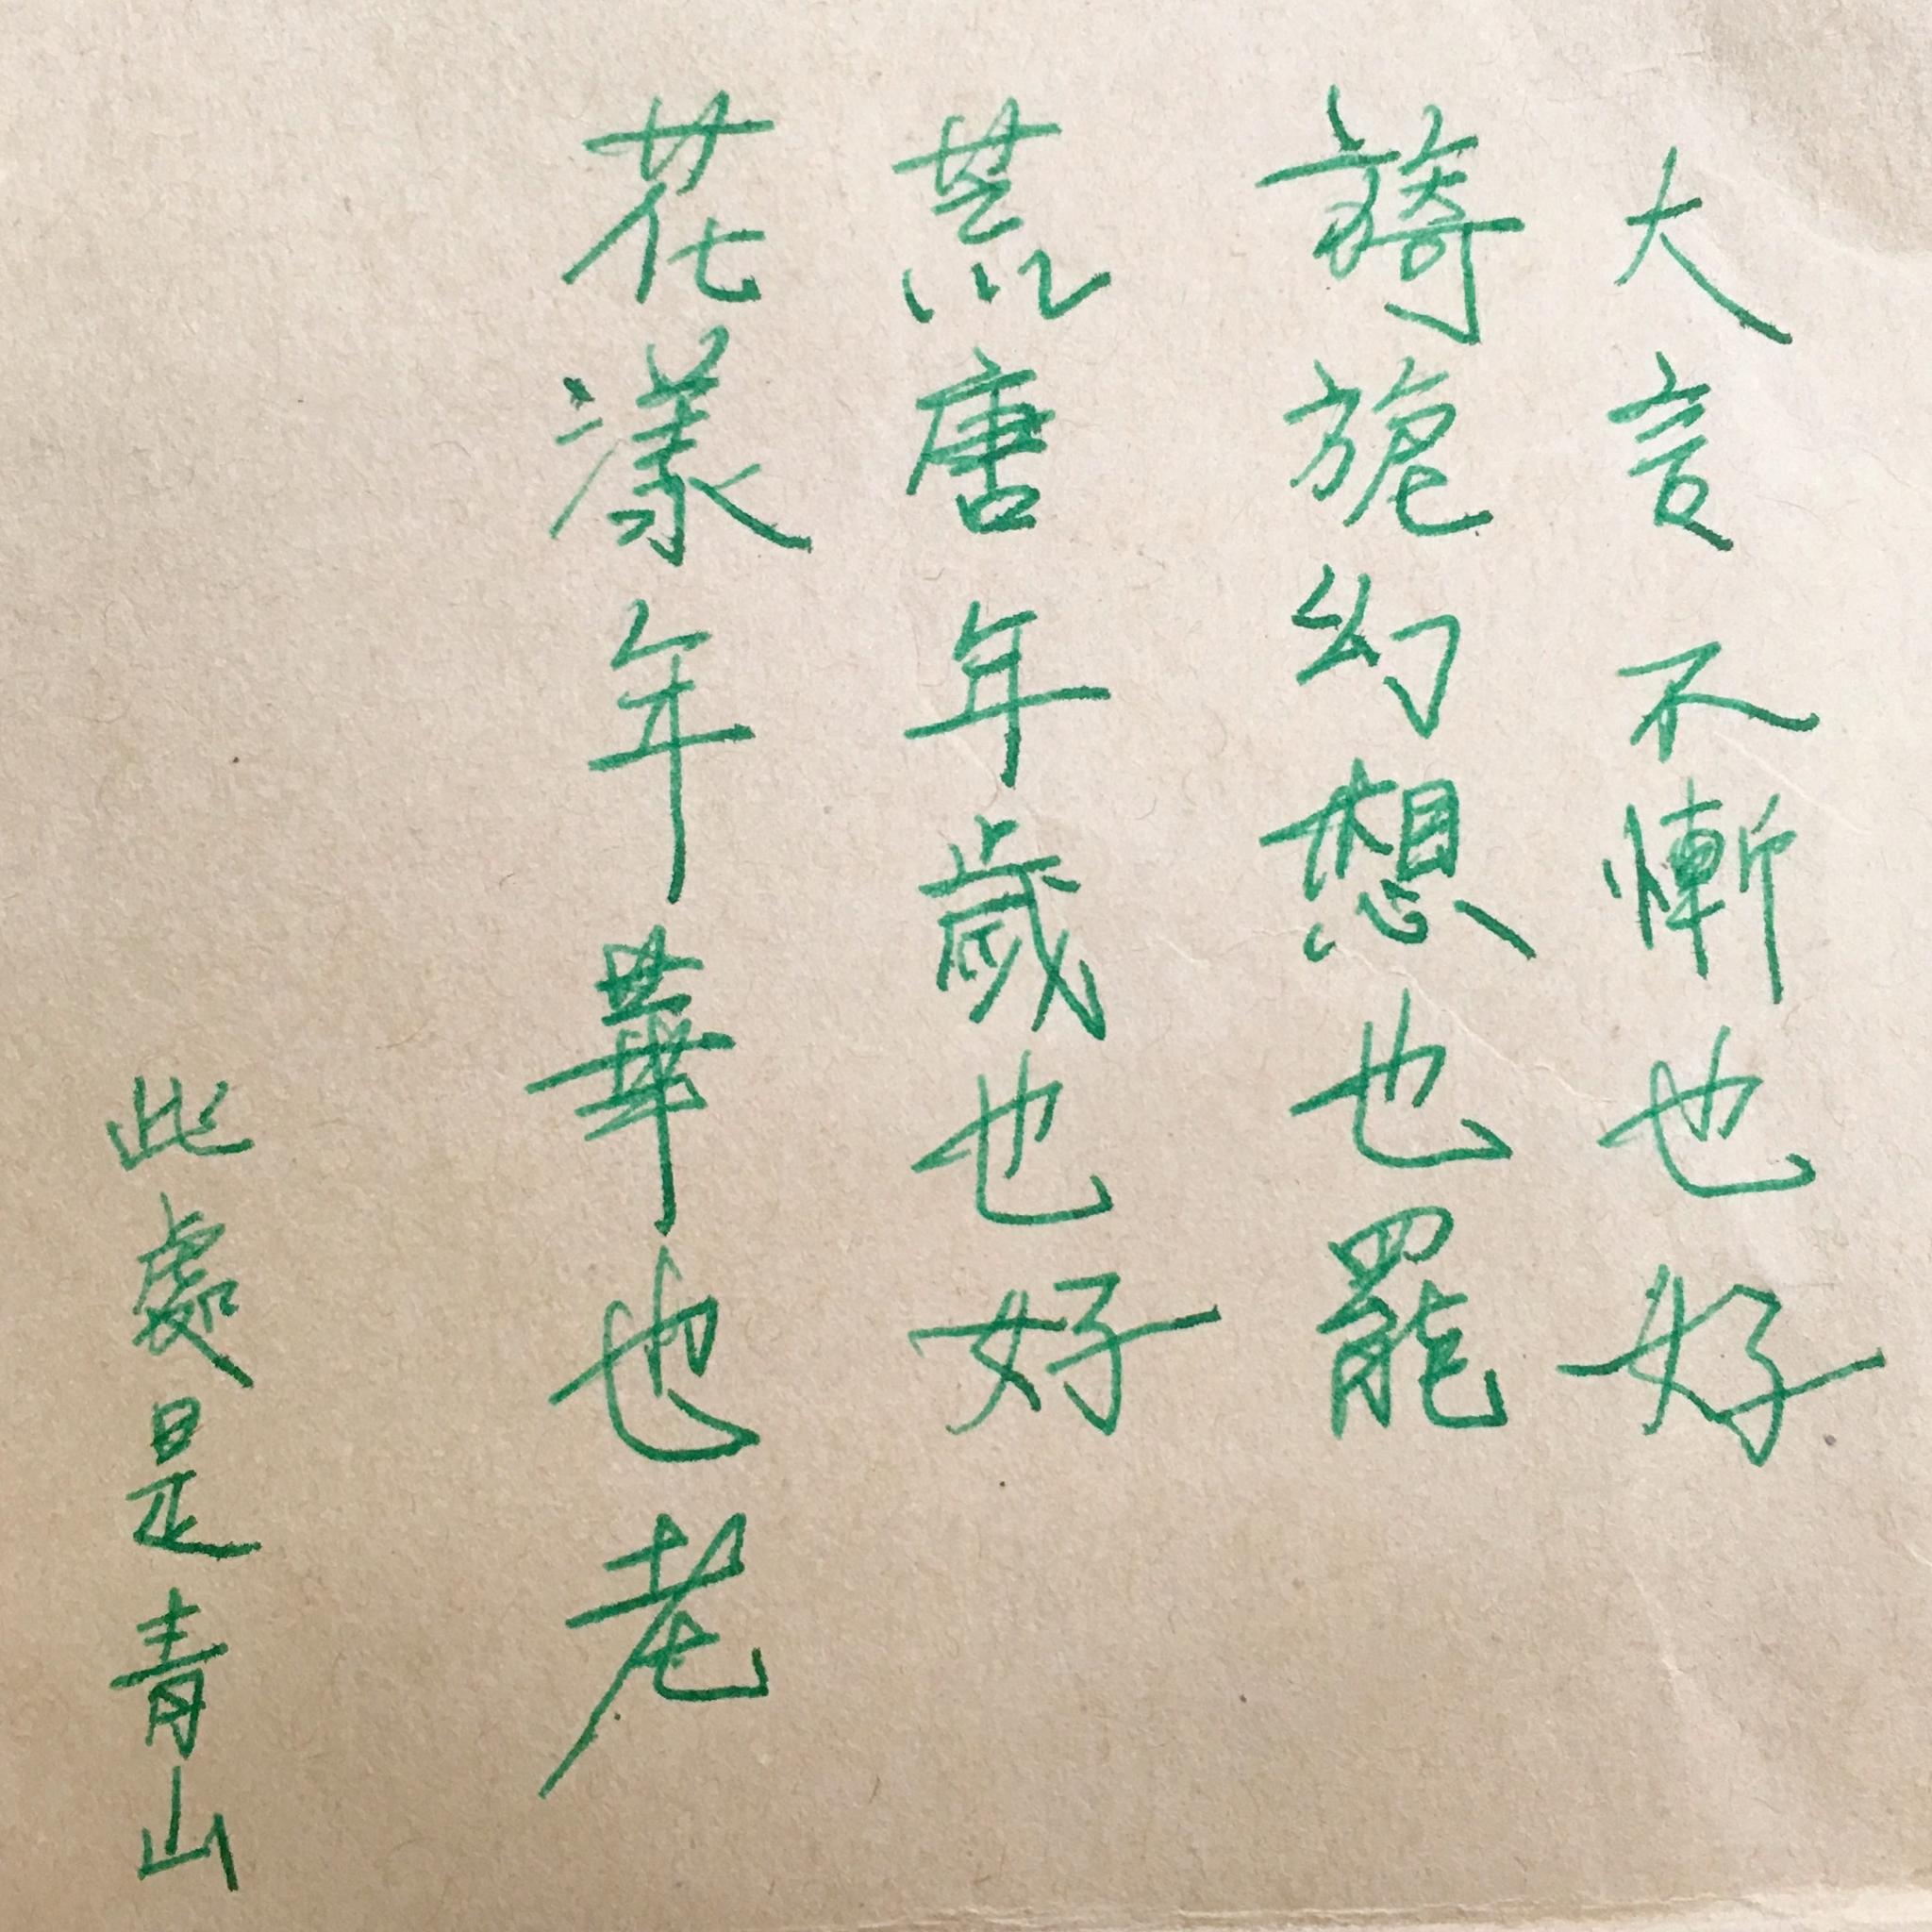 大言不慚也好
旖旎幻想也罷
荒唐年歲也好
花漾年華也老
此處是青山